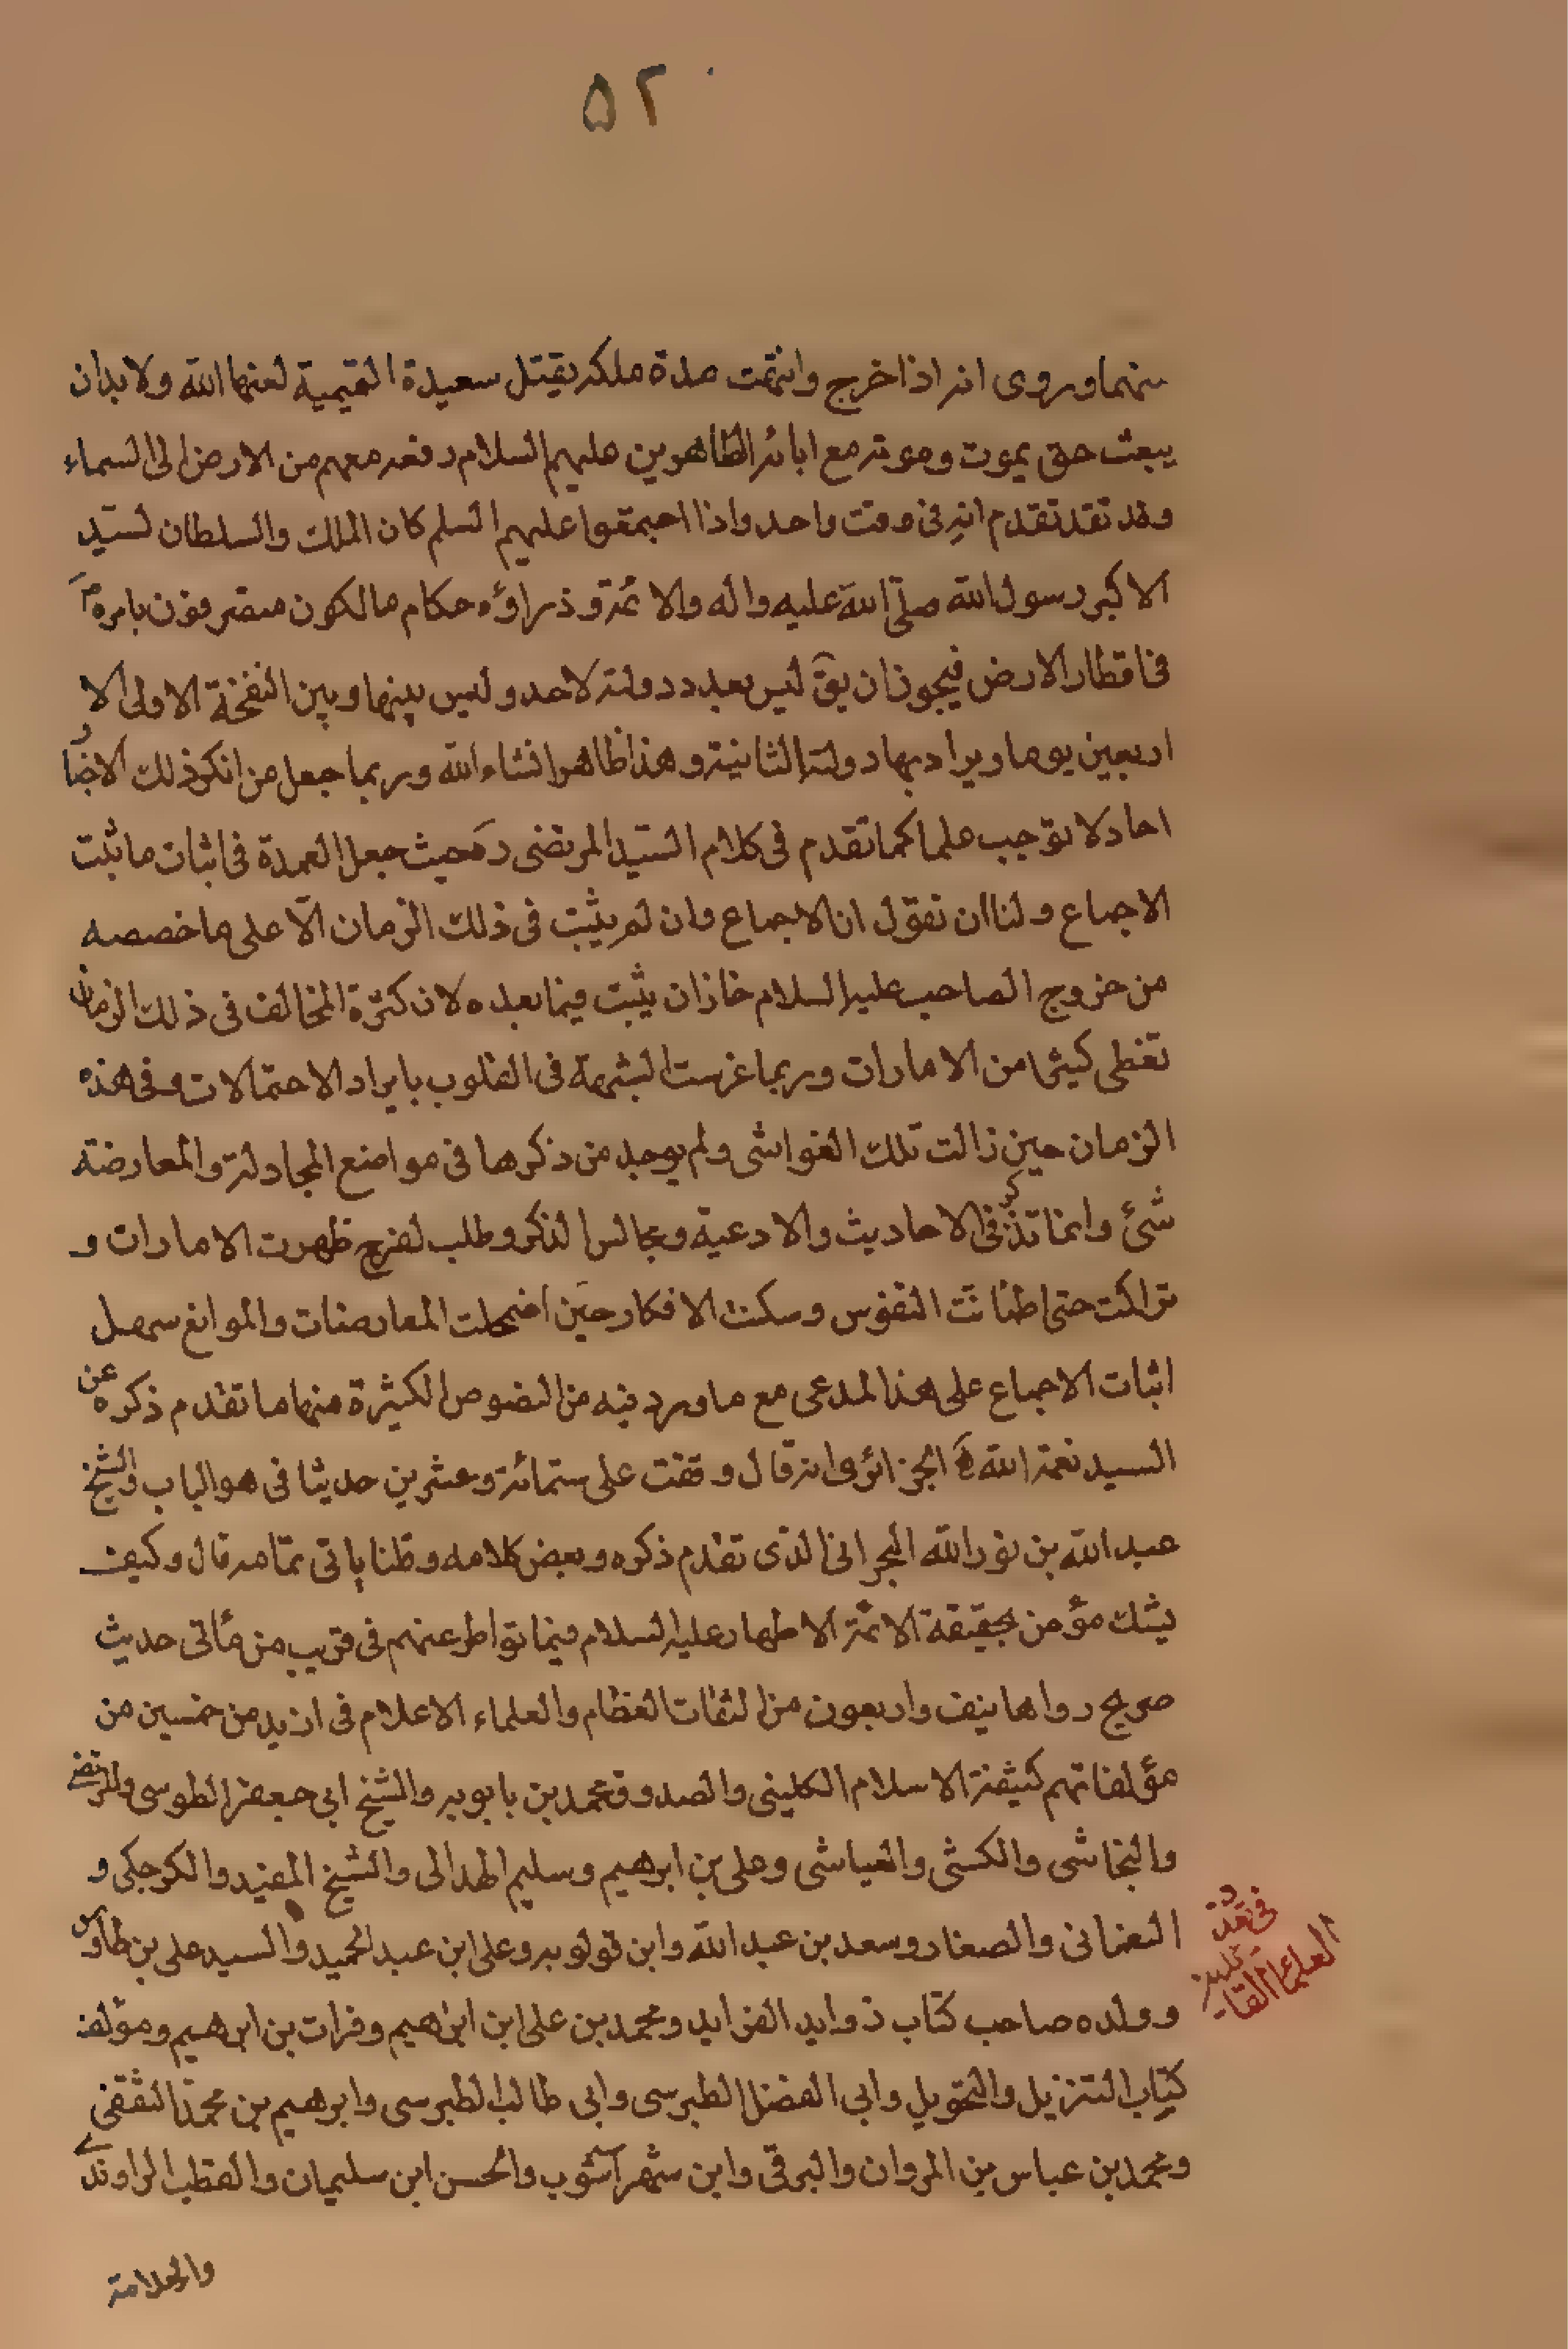 ٥٢
منهما وروى انه اذا خرج وانتهت مدة ملكه يقتل سعيدة التميمية لعنها الله ولا بد ان
يبعث حتى يموت وموته مع ابائه الطاهرين عليهم السلام رفعه معهم من الارض الى السماء
وقد تقد تقدم انه في وقت واحد واذا اجتمعوا عليهم السلم كان الملك والسلطان لسيد
الاكبر رسول الله صلى الله عليه واله والائمة وذراؤه حكام مالكون متصرفون بامره
في اقطار الارض فيجوز ان يق ليس بعد دولته لاحد وليس بينها وبين النفخة الاولى الا
اربعين يوما ويراد بها دولته الثانية وهذا ظاهر انشاء الله وربما جعل من انكر ذلك الاخبار
احاد لا توجب علما كما تقدم في كلام السيد المرتضى ره حيث جعل العمدة في اثبات ما يثبت
الاجماع ولنا ان نقول ان الاجماع وان لم يثبت في ذلك الزمان الّا على ما خصصه
من خروج الصاحب عليه السلام جاز ان يثبت فيما بعده لان كثرة المخالف في ذلك الزمان
تغطى كثيرا من الامارات وربما غرست الشبهة في القلوب بايراد الاحتمالات وفي هذه
الزمان حين زالت تلك الغواشى ولم يوجد من ذكرها في مواضع المجادلة والمعارضة
شئ وانما تذكر في الاحاديث والادعية ومجالس الذكر وطلب الفرج ظهرت الامارات و
تراكمت حتى اطمانت النفوس وسكنت الافكار حين اضمحلت المعارضات والموانع سهل
اثبات الاجماع على هذا المدعى مع ما ورد فيه من النصوص الكثيرة منها ما تقدم ذكره عن
السيد نعمة الله الجزائرى انه قال وقفت على ستمائة وعشرين حديثا في هو الباب والشيخ
عبد الله بن نور الله البحرانى الذى تقدم ذكره وبعض كلامه وقلنا ياتى تمامه قال وكيف
يشك مؤمن بحقيقة الائمة الاطهار عليه السلام فيما تواطر عنهم في قريب من مأتى حديث
صريح رواها نيف واربعون من الثقات العظام والعلماء الاعلام في ازيد من خمسين من
مؤلفاتهم كثيقة الاسلام الكلينى والصدوق محمد بن بابويه والشيخ ابى جعفر الطوسى والمرتضى
والنجاشى والكشى والعياشى وعلى بن ابرهيم وسليم الهلالى والشيخ المفيد والكرجكى و
النعمانى والصفار وسعد بن عبد الله وابن قولويه وعلى ابن عبد الحميد والسيد على بن طاوس
وولده صاحب كتاب زوايد الفوايد ومحمد بن على ابن ابرهيم وفرات بن ابرهيم ومؤلف
كتاب التنزيل والتحويل وابى الفضل الطبرسى وابى طالب الطبرسى وابرهيم بن محمد الثقفى
ومحمد بن عباس بن المروان والبرقى وابن شهر آشوب والحسن ابن سليمان والقطب الراوندى
والعلامة
في تعدد
العلماء القائلين